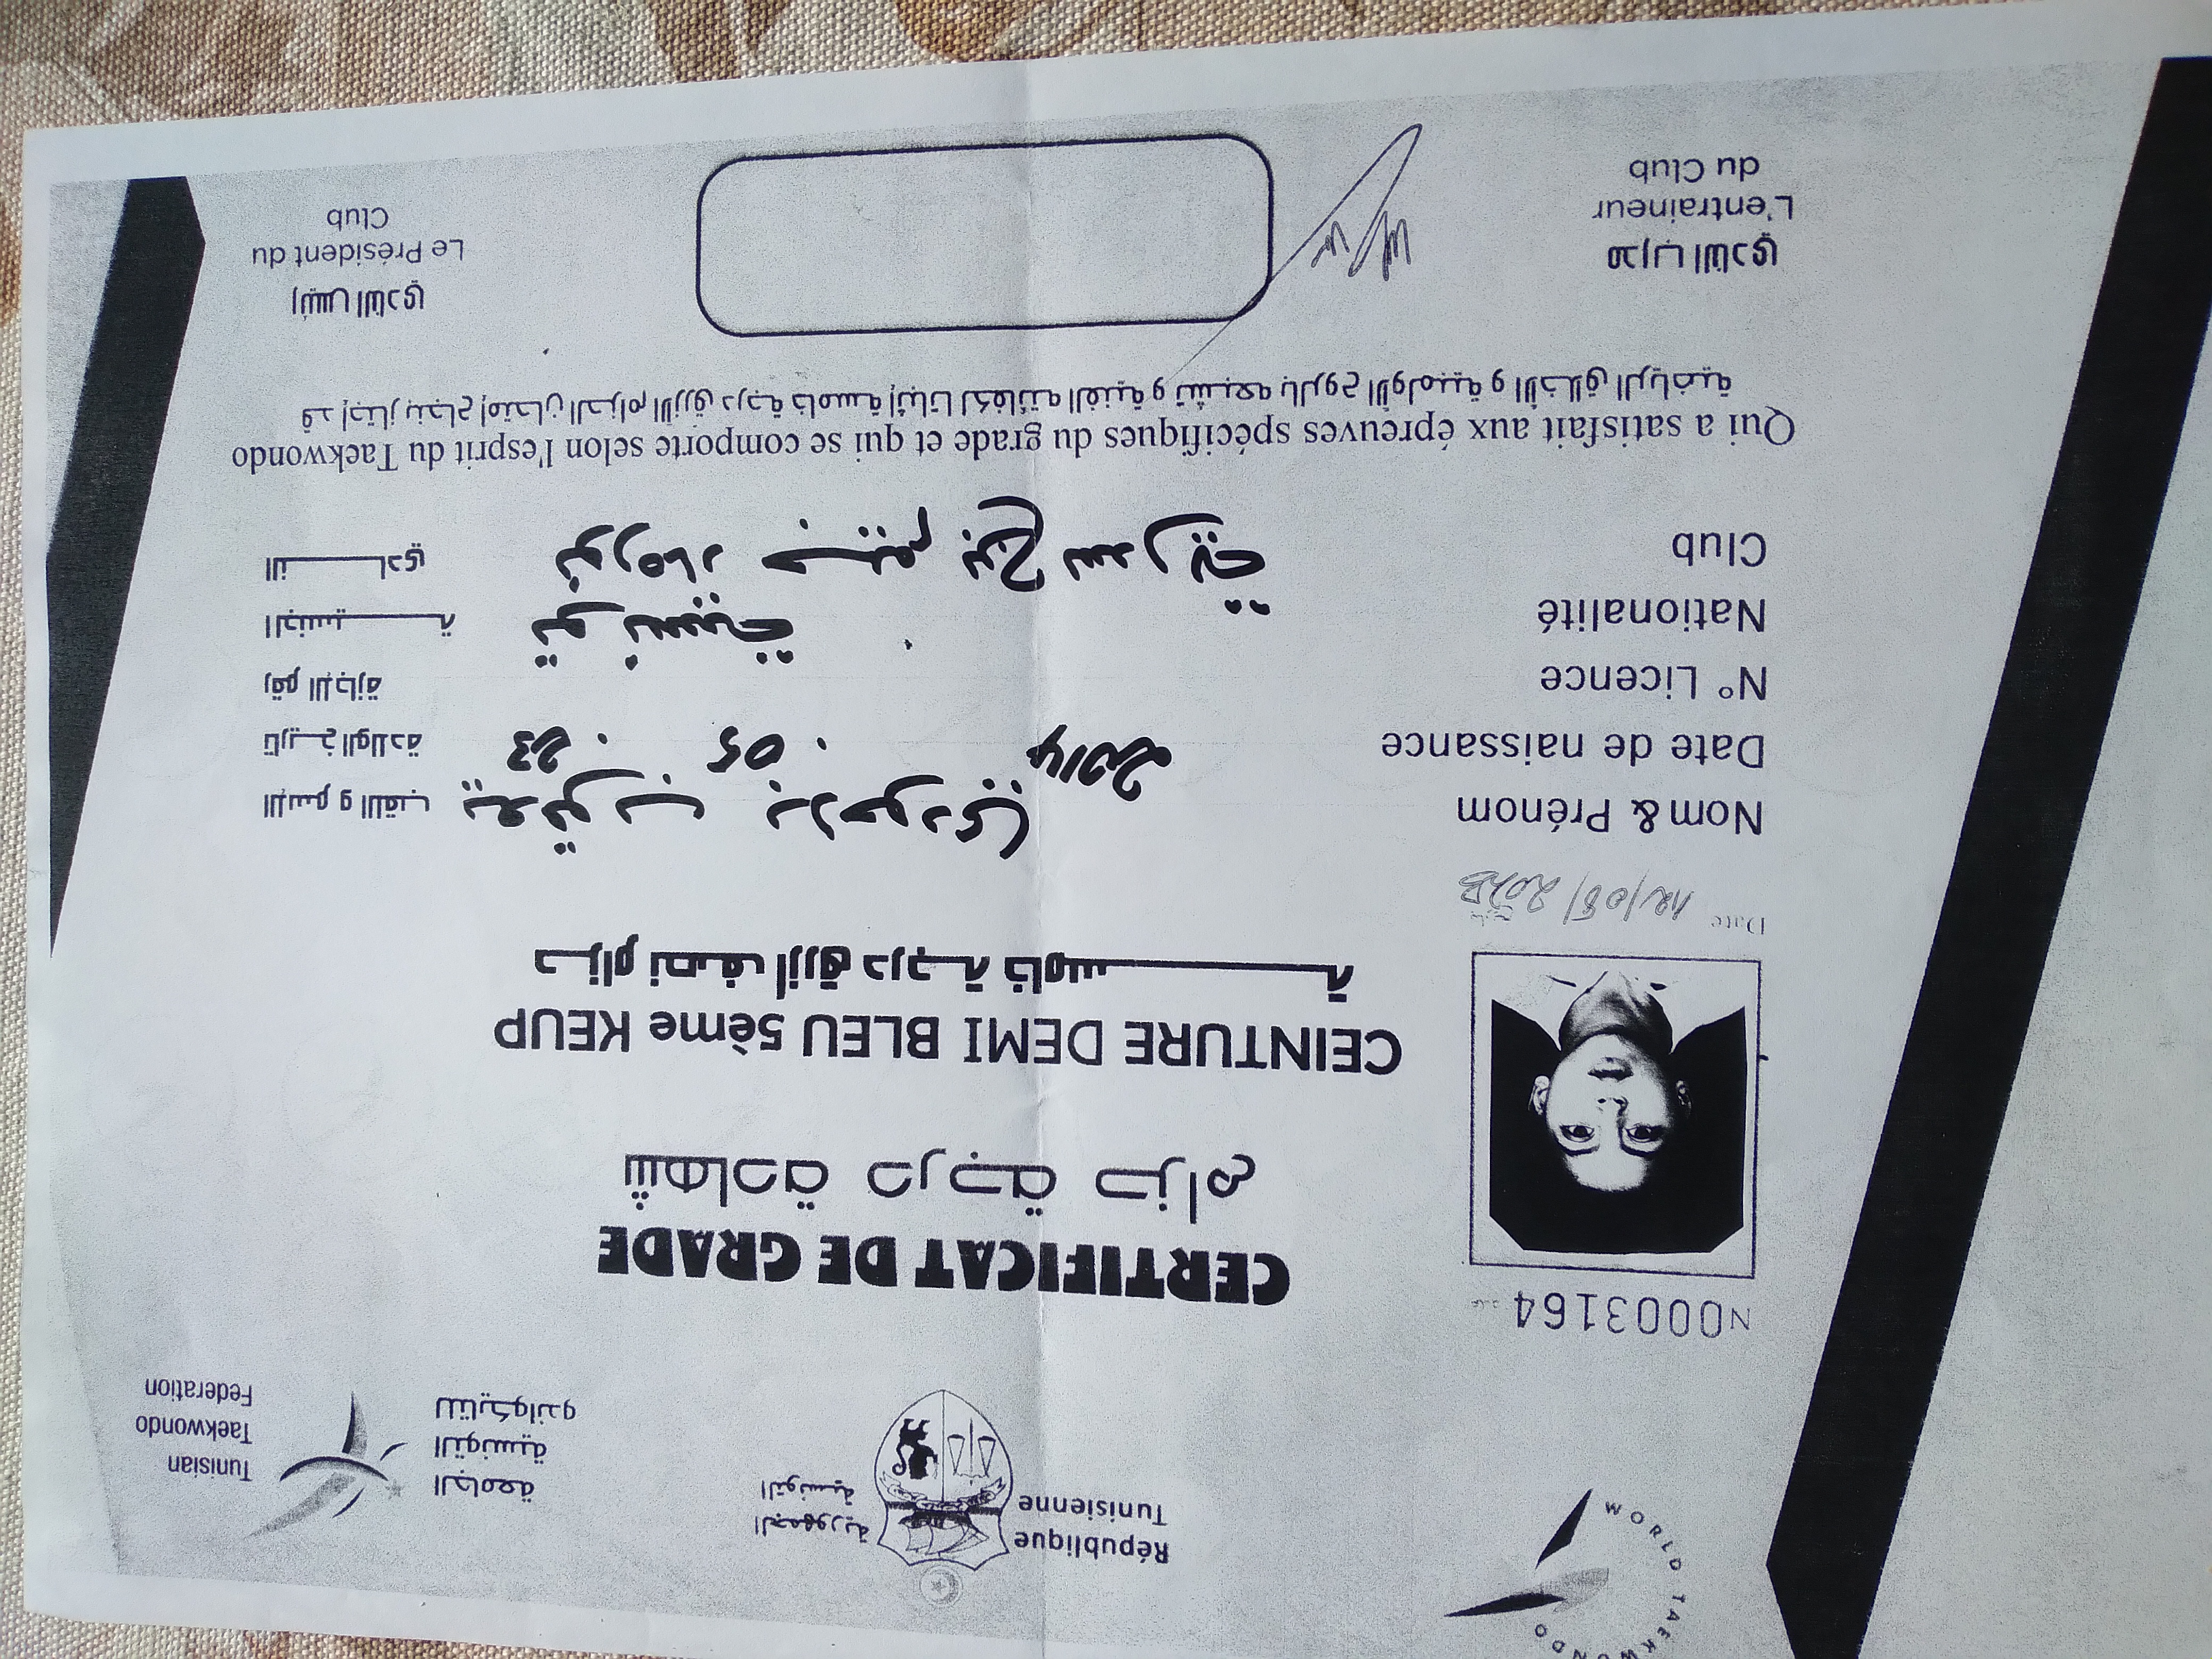 WORLD TAEKWONDO
République
Tunisienne
الجمهورية
التونسية
الجامعة
التونسية
للتايكواندو
Tunisian
Taekwondo
Federation
N0003164
CERTIFICAT DE GRADE
شهادة درجة حزام
CEINTURE DEMI BLEU 5ème KEUP
حزام نصف أزرق درجة خامسة
Date 12/08/2023
Nom & Prénom
يعقوب
الإسم و اللقب
Date de naissance
2014 . 05 . 23
تاريخ الولادة
N° Licence
رقم الإجازة
Nationalité
تونسية
الجنسية
Club
النادي
Qui a satisfait aux épreuves spécifiques du grade et qui se comporte selon l'esprit du Taekwondo
قد إجتاز بنجاح إمتحان الحزام الأزرق درجة خامسة إثباتا لكفائته الفنية و تشبعه بالروح الأولمبية و الأخلاق الرياضية
مدرب النادي
L'entraineur
du Club
رئيس النادي
Le Président du
Club